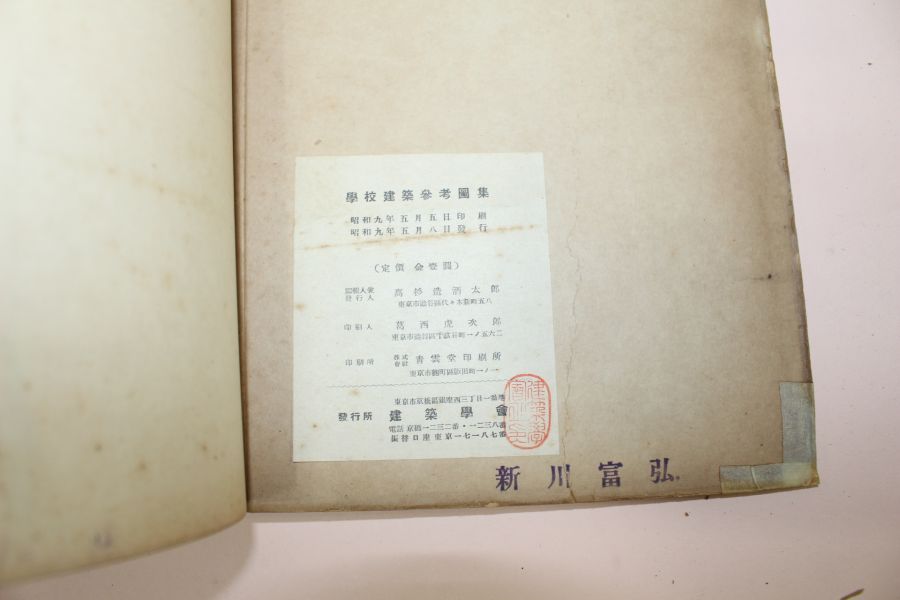 學校建築參考圖集
昭和九年五月五日印刷
昭和九年五月八日發行
(定價 金壹圓)
編輯人兼
發行人 高杉造酒太郎
東京市澁谷區代々木新町五八
印刷人 葛西虎次郎
東京市澁谷區千駄谷町一ノ五六二
印刷所 株式會社 靑雲堂印刷所
東京市麴町區飯田町一ノ一
東京市京橋區銀座西三丁目一番地
發行所 建築學會
電話 京橋一二三二番・一二三八番
振替口座東京一七一八七番
新川富弘